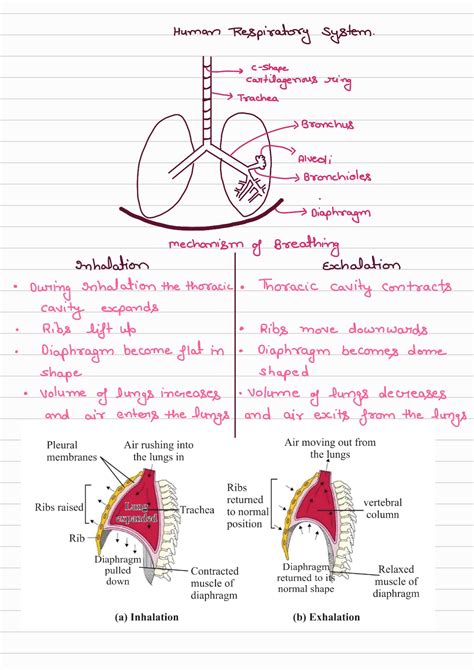 Human Respiratory System.
C-shape
cartilagenous ring
Trachea
Bronchus
Alveoli
Bronchioles
Diaphragm
mechanism of Breathing
Inhalation
Exhalation
• During Inhalation the thoracic
cavity expands
• Ribs lift up
• Diaphragm become flat in
shape
• Volume of lungs increases
and air enters the lungs
• Thoracic cavity contracts
• Ribs move downwards
• Diaphragm becomes dome
shaped
• Volume of lungs decreases
and air exits from the lungs
Pleural
membranes
Air rushing into
the lungs in
Ribs raised
Lung
expanded
Trachea
Rib
Diaphragm
pulled
down
Contracted
muscle of
diaphragm
(a) Inhalation
Air moving out from
the lungs
Ribs
returned
to normal
position
vertebral
column
Diaphragm
returned to its
normal shape
Relaxed
muscle of
diaphragm
(b) Exhalation